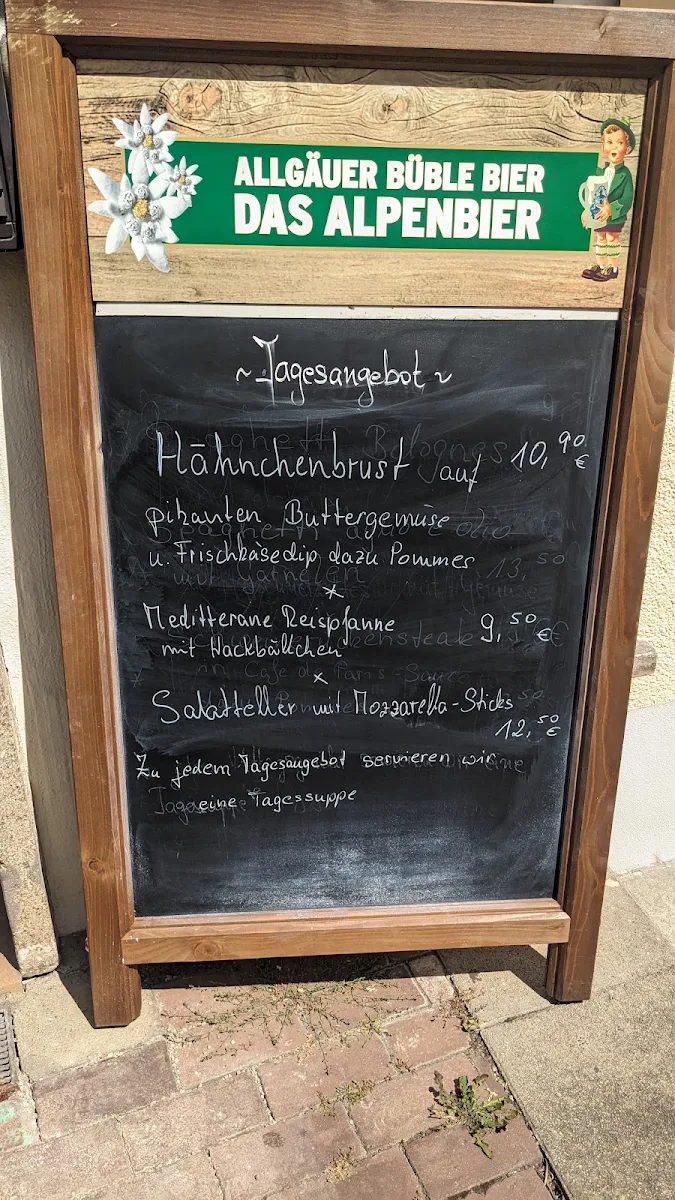 ALLGÄUER BÜBLE BIER
DAS ALPENBIER
~ Tagesangebot ~
Hähnchenbrust auf 10,90 €
pikanten Buttergemüse
u. Frischkäsedip dazu Pommes
x
Meditterane Reispfanne 9,50 €
mit Hackbällchen
x
Salatteller mit Mozzarella-Sticks
12,50 €
Zu jedem Tagesangebot servieren wir
eine Tagessuppe